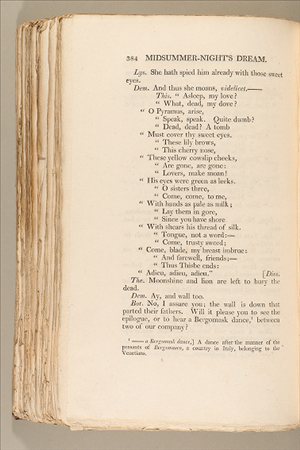 384 MIDSUMMER-NIGHT'S DREAM.
Lys. She hath spied him already with those sweet
eyes.
Dem. And thus she moans, videlicet.——
This. “ Asleep, my love?
“ What, dead, my dove?
“ O Pyramus, arise,
“ Speak, speak. Quite dumb?
“ Dead, dead? A tomb
“ Must cover thy sweet eyes.
“ These lily brows,
“ This cherry nose,
“ These yellow cowslip cheeks,
“ Are gone, are gone:
“ Lovers, make moan!
“ His eyes were green as leeks.
“ O sisters three,
“ Come, come, to me,
“ With hands as pale as milk;
“ Lay them in gore,
“ Since you have shore
“ With shears his thread of silk.
“ Tongue, not a word:—
“ Come, trusty sword;
“ Come, blade, my breast imbrue:
“ And farewell, friends;—
“ Thus Thisbe ends:
“ Adieu, adieu, adieu.” [Dies.
The. Moonshine and lion are left to bury the
dead.
Dem. Ay, and wall too.
Bot. No, I assure you; the wall is down that
parted their fathers. Will it please you to see the
epilogue, or to hear a Bergomask dance,¹ between
two of our company?
¹ —— a Bergomask dance,] A dance after the manner of the
peasants of Bergomasco, a country in Italy, belonging to the
Venetians.